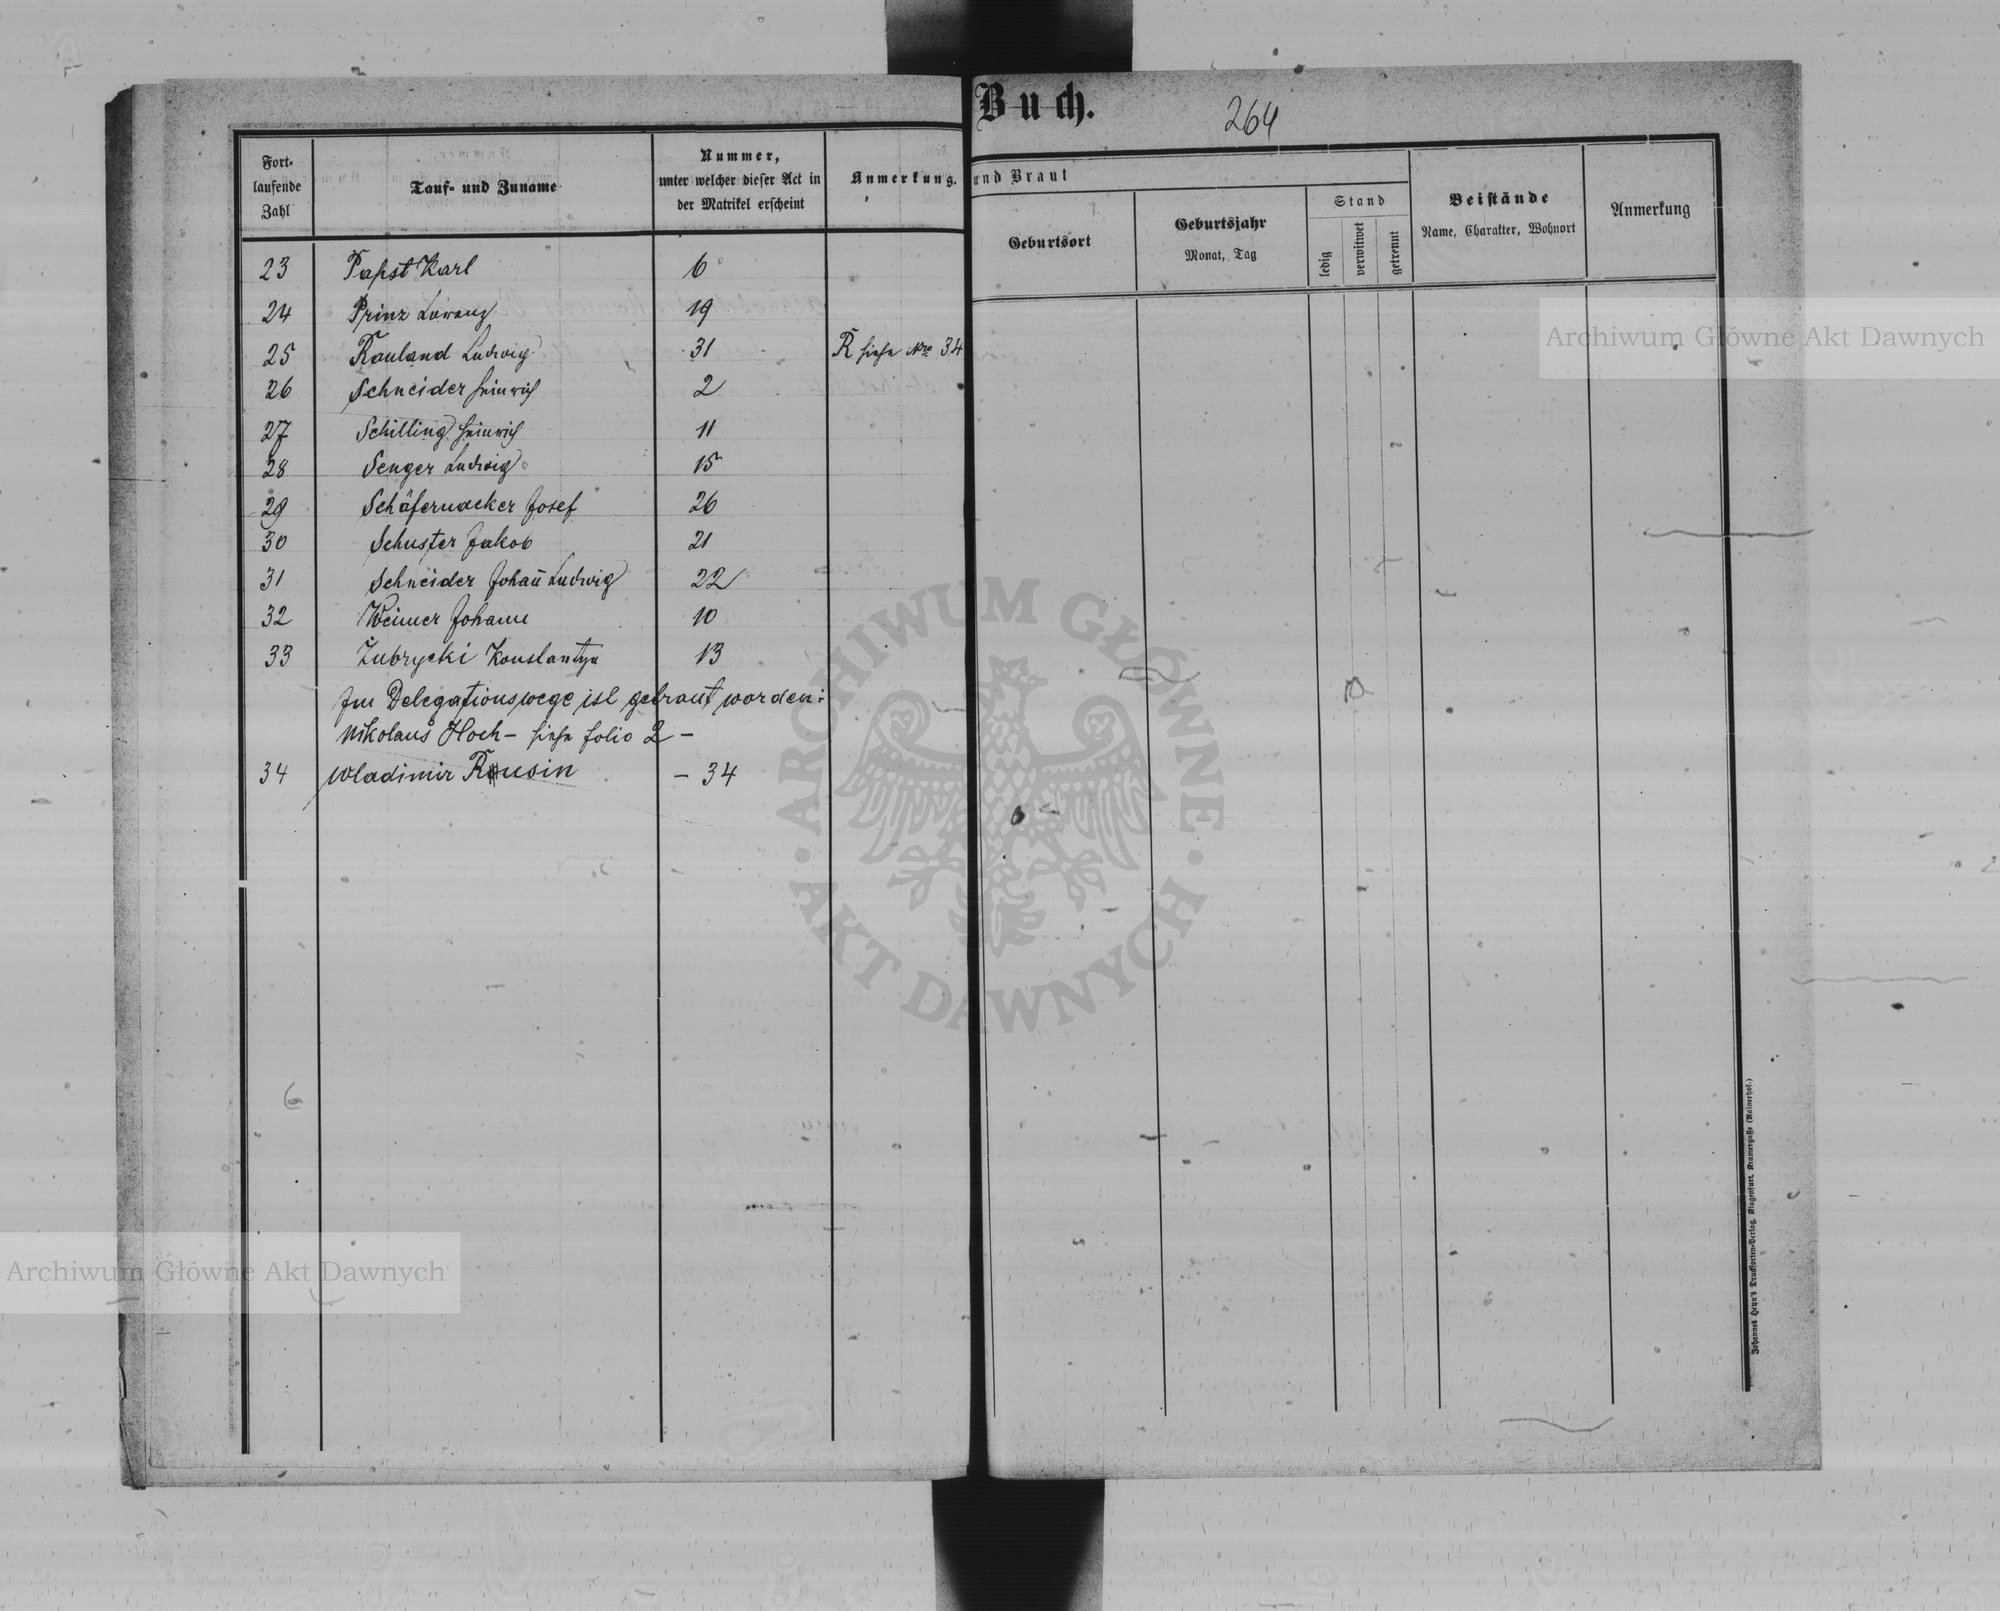 Buch.
264
Fort-
laufende
Zahl
Tauf- und Zuname
Nummer,
unter welcher dieser Act in
der Matrikel erscheint
Anmerkung.
23 Papst Karl 6
24 Prinz Lorenz 19
25 Rauland Ludwig 31 R siehe Nro 34
26 Schneider Heinrich 2
27 Schilling Heinrich 11
28 Senger Ludwig 15
29 Schäfernacker Josef 26
30 Schuster Jakob 21
31 Schneider Johañ Ludwig 22
32 Weimer Johann 10
33 Żubrycki Konstantyn 13
Im Delegationswege ist getraut worden:
Nikolaus Hoch - siehe folio 2 -
34 Wladimir Rousin - 34
und Braut
Geburtsort
Geburtsjahr
Monat, Tag
Stand
ledig
verwitwet
getrennt
Beistände
Name, Charakter, Wohnort
Anmerkung
Johannes Heyn's Drucksorten-Verlag, Klagenfurt, Kramergasse (Rainerhof.)
Archiwum Główne Akt Dawnych
ARCHIWUM GŁÓWNE · AKT DAWNYCH ·
Archiwum Główne Akt Dawnych